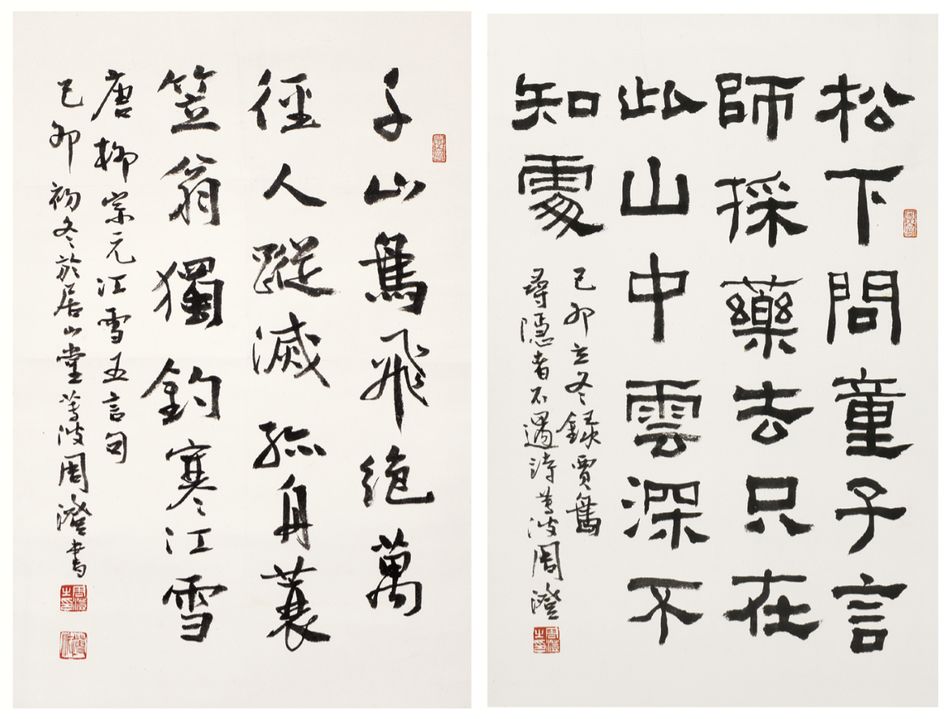 松下問童子言
師採藥去只在
此山中雲深不
知處
己卯立冬錄賈島
尋隱者不遇詩蓴波周澄
千山鳥飛絕萬
徑人蹤滅孤舟蓑
笠翁獨釣寒江雪
唐柳宗元江雪五言句
己卯初冬於居山堂蓴波周澄書